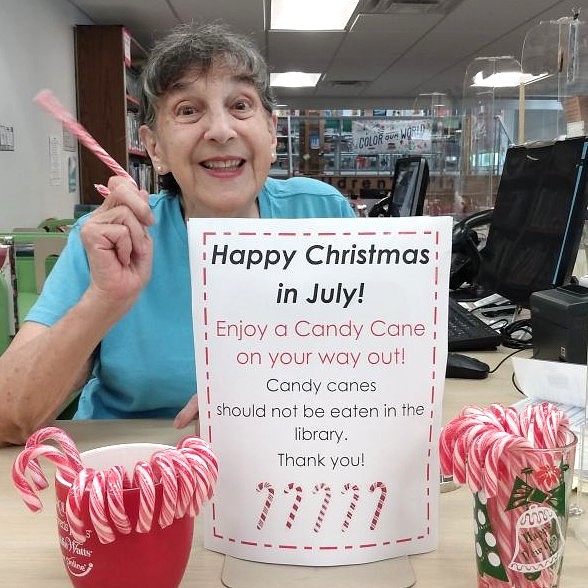 COLOR OUR WORLD
Happy Christmas
in July!
Enjoy a Candy Cane
on your way out!
Candy canes
should not be eaten in the
library.
Thank you!
Watts
Happy